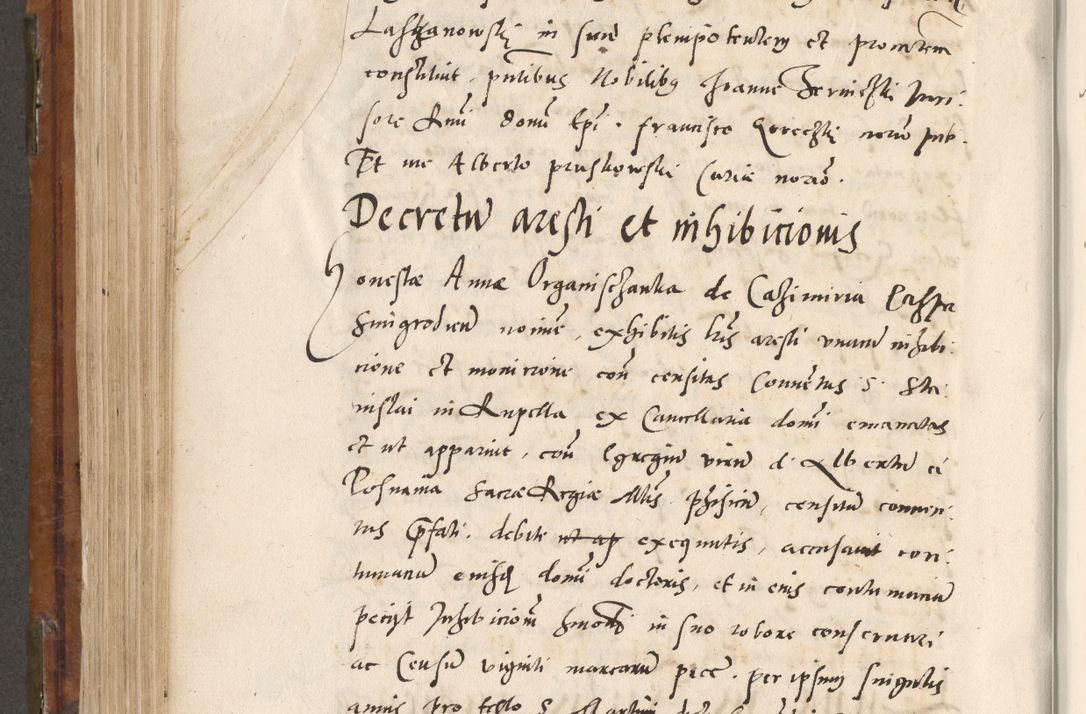 Laszanowskj in sui plenipotentem et procurem
constituit, pntibus Nobilibus Joanne Jerniczki Juri
sore Rmi domi Epi. francisco Goreczkj norio pub.
Et me Alberto pruskowski Curiae norio.
Decretu aresti et inhibicionis
Honestae Annae Organisczanka de Cazimiria
noie, exhibitis lris aresti unacum inhibi
cione et monicione con censitas Conventus S. Sta
nislai in Rupella ex Cancellaria domi emanatas
et ut apparuit, con Egregiu viru d. Albertu a
Posnania Sacrae Regiae Mtis phisicu, censitu conven
tus pfati. debite ut ap exequutis, accusavit con
tumaciu eiusd domi doctoris, et in eius contumaciu
petiyt Inhibicione in suo robore conservari
ac Censu viginti marcaru pecc. per ipsum singulis
annis pro festo S. Martini